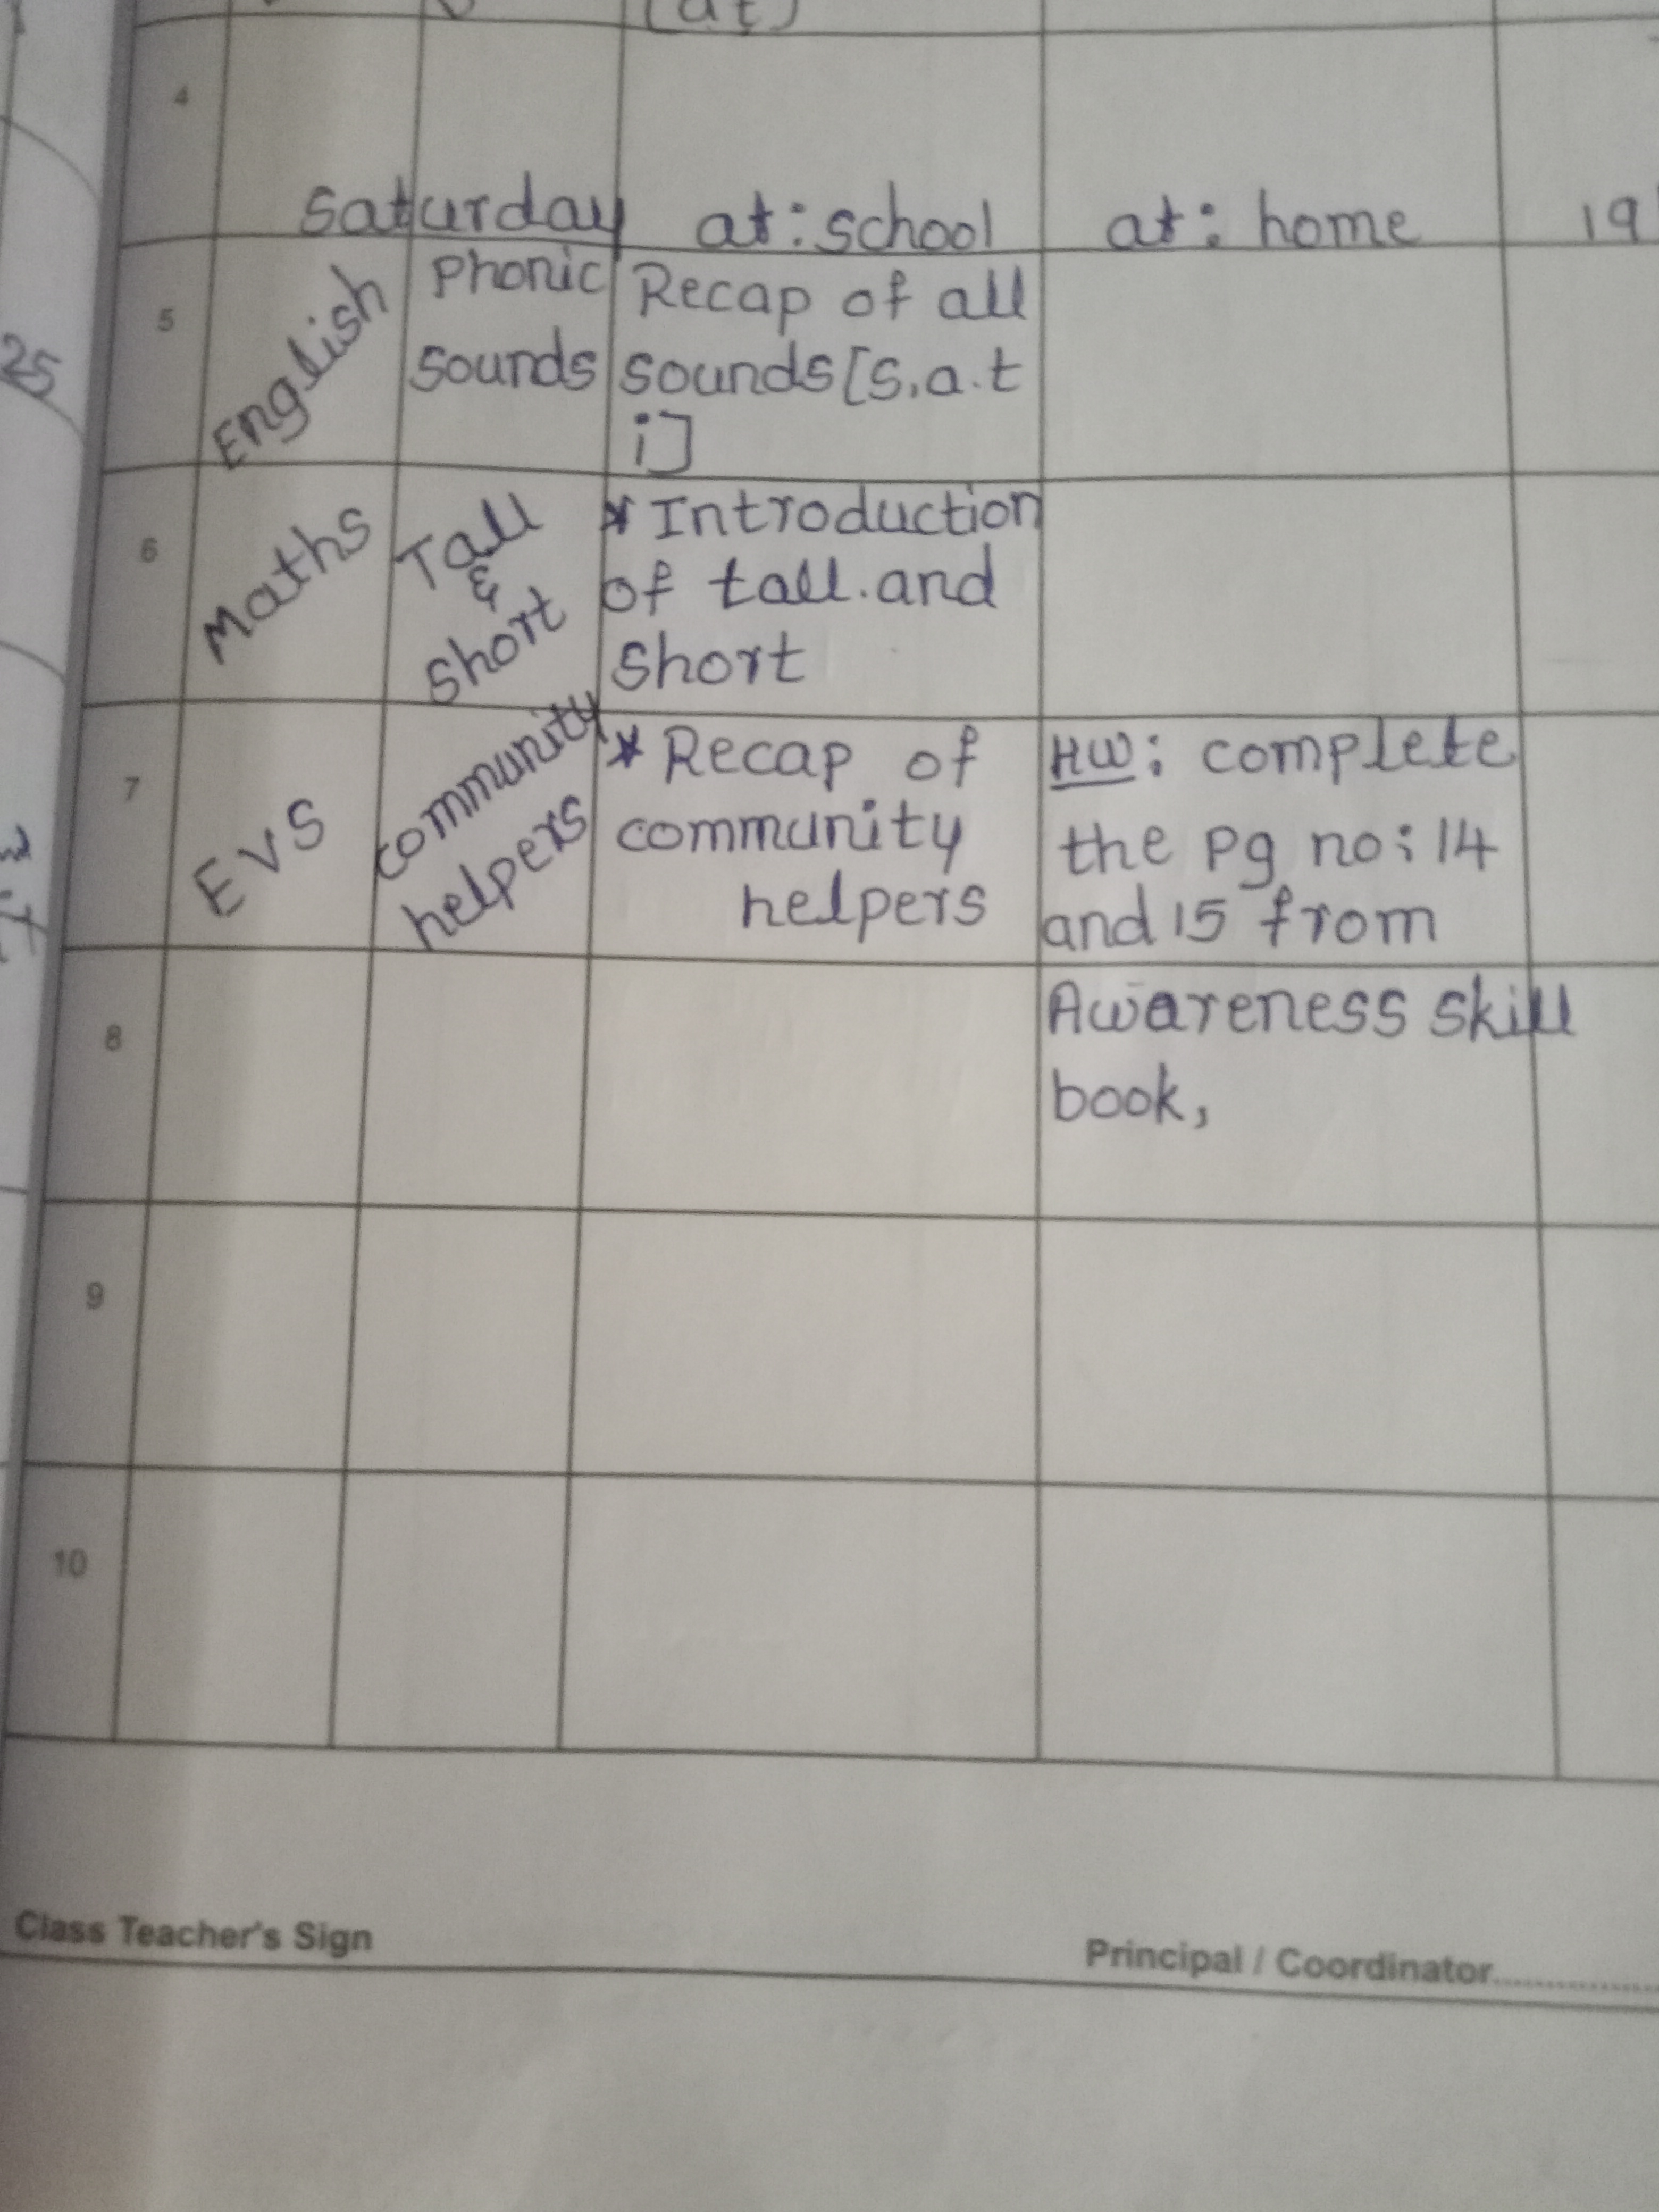 4
saturday at: school at: home 19
5 English Phonic sounds Recap of all
sounds [s, a. t
i]
6 Maths Tall & short * Introduction
of tall. and
short
7 EVS community helpers * Recap of
community
helpers
HW: complete
the pg no: 14
and 15 from
8 Awareness skill
book,
9
10
25
Class Teacher's Sign
Principal / Coordinator